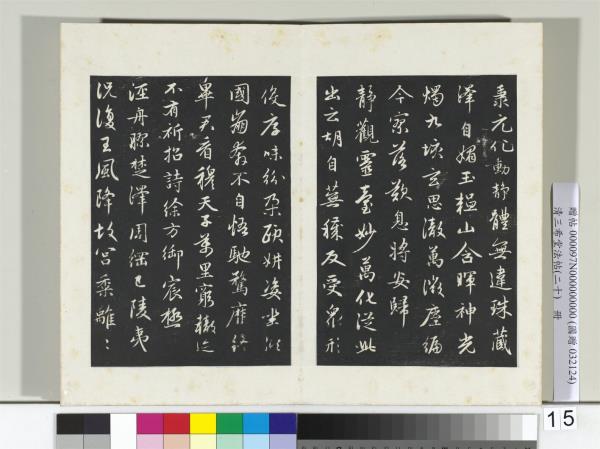 秉元化動靜體無違珠藏
澤自媚玉韞山含暉神光
燭九垓玄思徹萬微塵編
今寥落歎息將安歸
靜觀靈臺妙萬化從此
出云胡自蕪穢反受衆形
役厚味紛朵頤妍姿坐傾
國崩奔不自悟馳騖靡終
畢君看穆天子萬里窮轍迹
不有祈招詩徐方御宸極
涇舟膠楚澤周綱已陵夷
況復王風降故宮黍離〻
贈帖 000097N000000000 (國贈 032124)
清三希堂法帖(二十) 冊
15